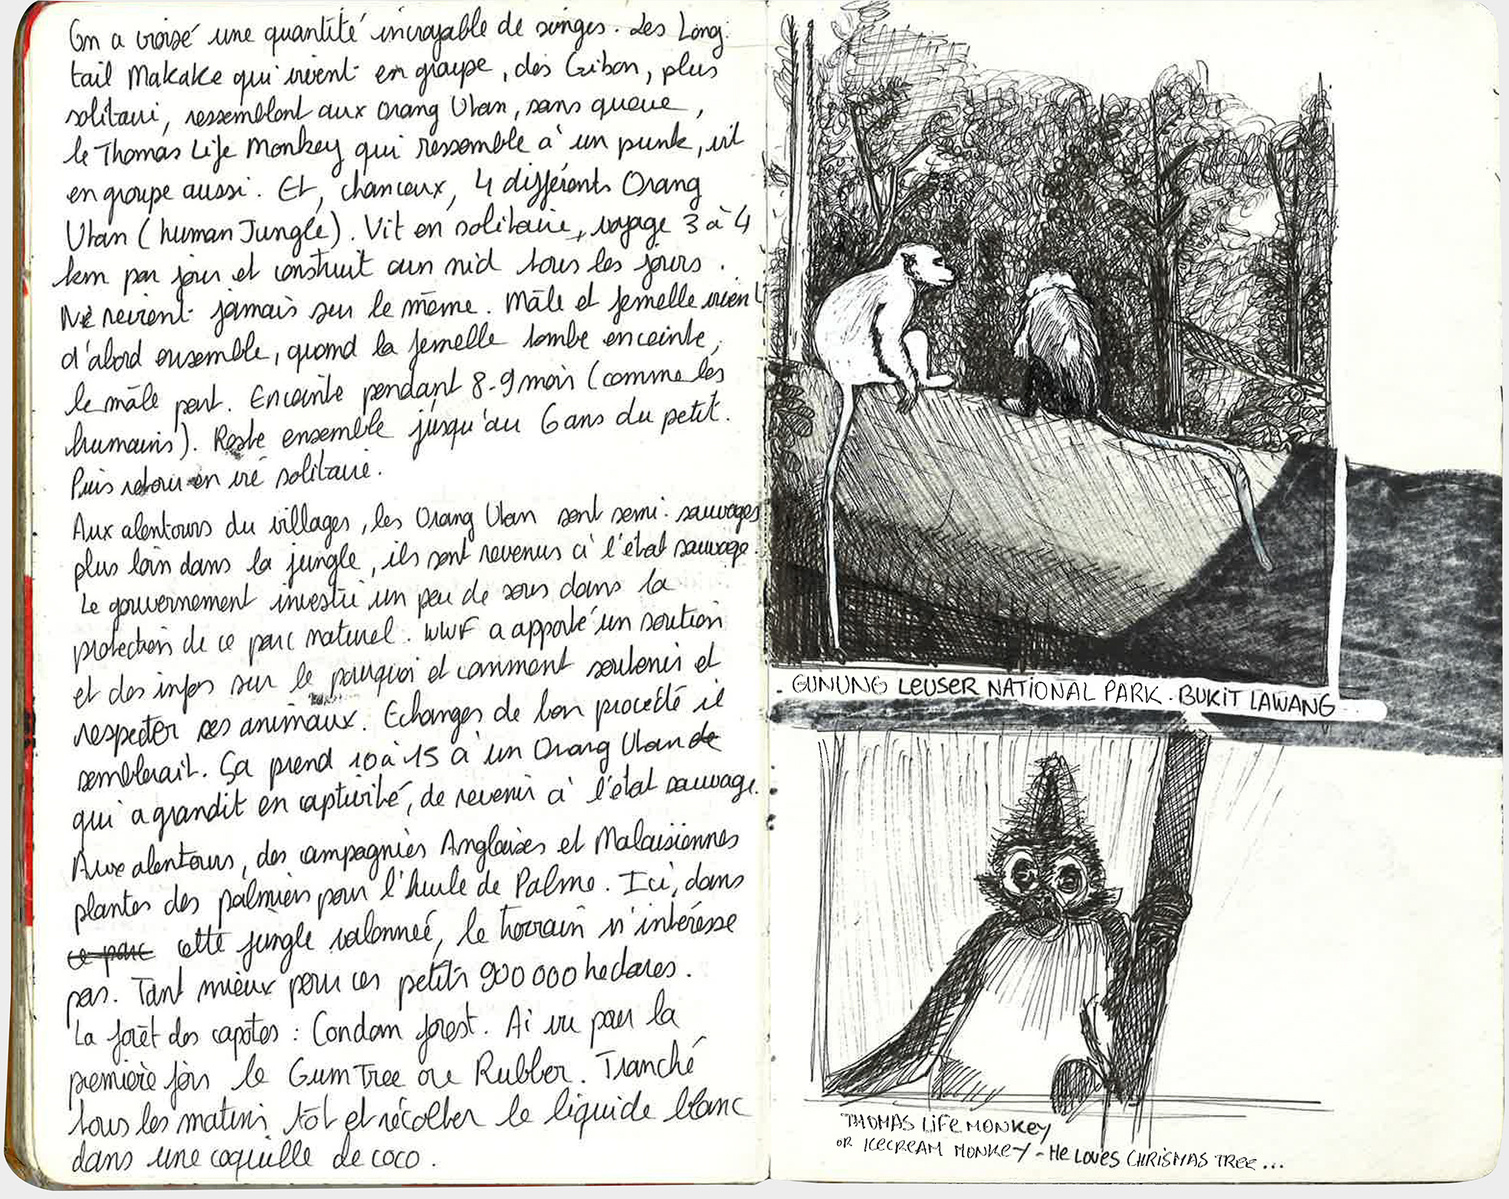 On a croisé une quantité incroyable de singes. Les Long
tail Makake qui vivent en groupe, des Gibon, plus
solitaire, ressemblent aux Orang Utan, sans queue,
le Thomas Life Monkey qui ressemble à un punk, vit
en groupe aussi. Et, chanceux, 4 différents Orang
Utan (human Jungle). Vit en solitaire, voyage 3 à 4
km par jour et construit un nid tous les jours.
Ne revient jamais sur le même. Mâle et femelle vivent
d'abord ensemble, quand la femelle tombe enceinte,
le mâle part. Enceinte pendant 8-9 mois (comme les
humains). Reste ensemble jusqu'au 6 ans du petit.
Puis retour en vie solitaire.
Aux alentours du villages, les Orang Utan sont semi-sauvages
plus loin dans la jungle, ils sont revenus à l'état sauvage.
Le gouvernement investie un peu de sous dans la
protection de ce parc naturel. WWF a apporté un soutien
et des infos sur le pourquoi et comment soutenir et
respecter ses animaux. Echanges de bon procédé il
semblerait. Ça prend 10 à 15 à un Orang Utan de
qui a grandit en captivité, de revenir à l'état sauvage.
Aux alentours, des compagnies Anglaises et Malaisiennes
plantes des palmiers pour l'huile de Palme. Ici, dans
ce parc cette jungle valonneé, le terrain n'intéresse
pas. Tant mieux pour ces petits 900 000 hectares.
La forêt des capotes : Condom forest. Ai vu pour la
première fois le Gum Tree ou Rubber. Tranché
tous les matins tôt et récolter le liquide blanc
dans une coquille de coco.
. GUNUNG LEUSER NATIONAL PARK . BUKIT LAWANG ...
THOMAS LIFE MONKEY
OR ICECREAM MONKEY - HE LOVES CHRISMAS TREE ...